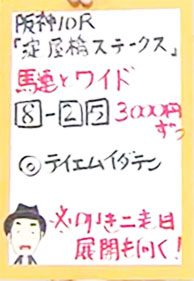 阪神10R
「淀屋橋ステークス」
馬連とワイド
8-25 3000円ずつ
◎テイエムイダテン
※叩き二走目
展開も向く!